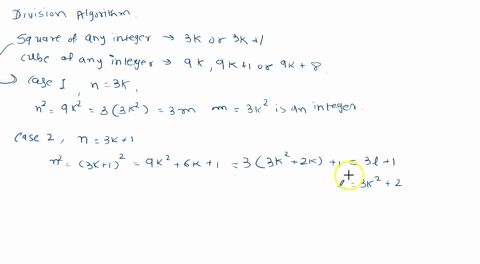 Division Algorithm.
Square of any integer → 3k or 3k+1
cube of any integer → 9k, 9k+1 or 9k+8
Case I, n=3k,
n² = 9k² = 3(3k²) = 3m m = 3k² is an integer.
Case 2, n = 3k+1
n² = (3k+1)² = 9k²+6k+1 = 3(3k²+2k)+1 = 3l+1
l = 3k²+2